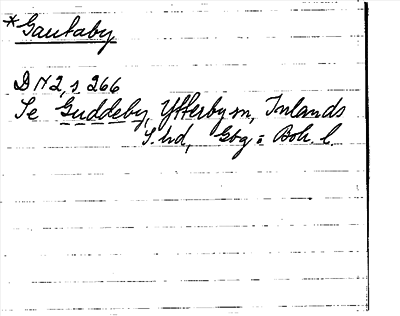 *Gautaby
DN 2, s 266
Se Guddeby, Ytterby sn, Inlands
S. hd, Gbg = Boh. l.